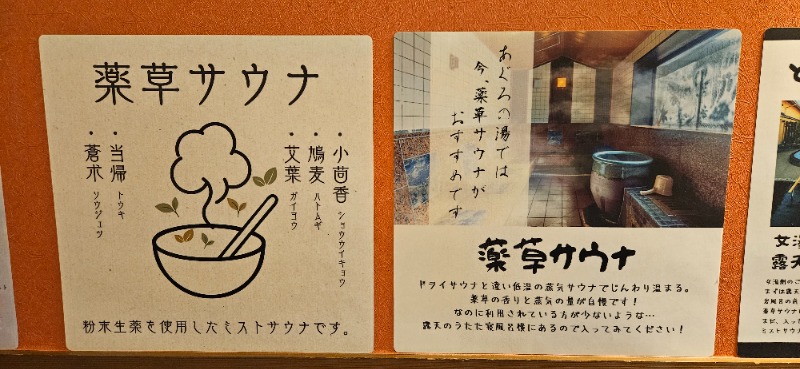 薬草サウナ
・小茴香 ショウウイキョウ
・鳩麦 ハトムギ
・艾葉 ガイヨウ
・当帰 トウキ
・蒼朮 ソウジュツ
粉末生薬を使用したミストサウナです。
あぐろの湯では
今、薬草サウナが
おすすめです
薬草サウナ
ドライサウナと違い低温の蒸気サウナでじんわり温まる。
薬草の香りと蒸気の量が自慢です！
なのに利用されている方が少ないような…
露天のうたた寝風呂横にあるので入ってみてください！
女湯
露天